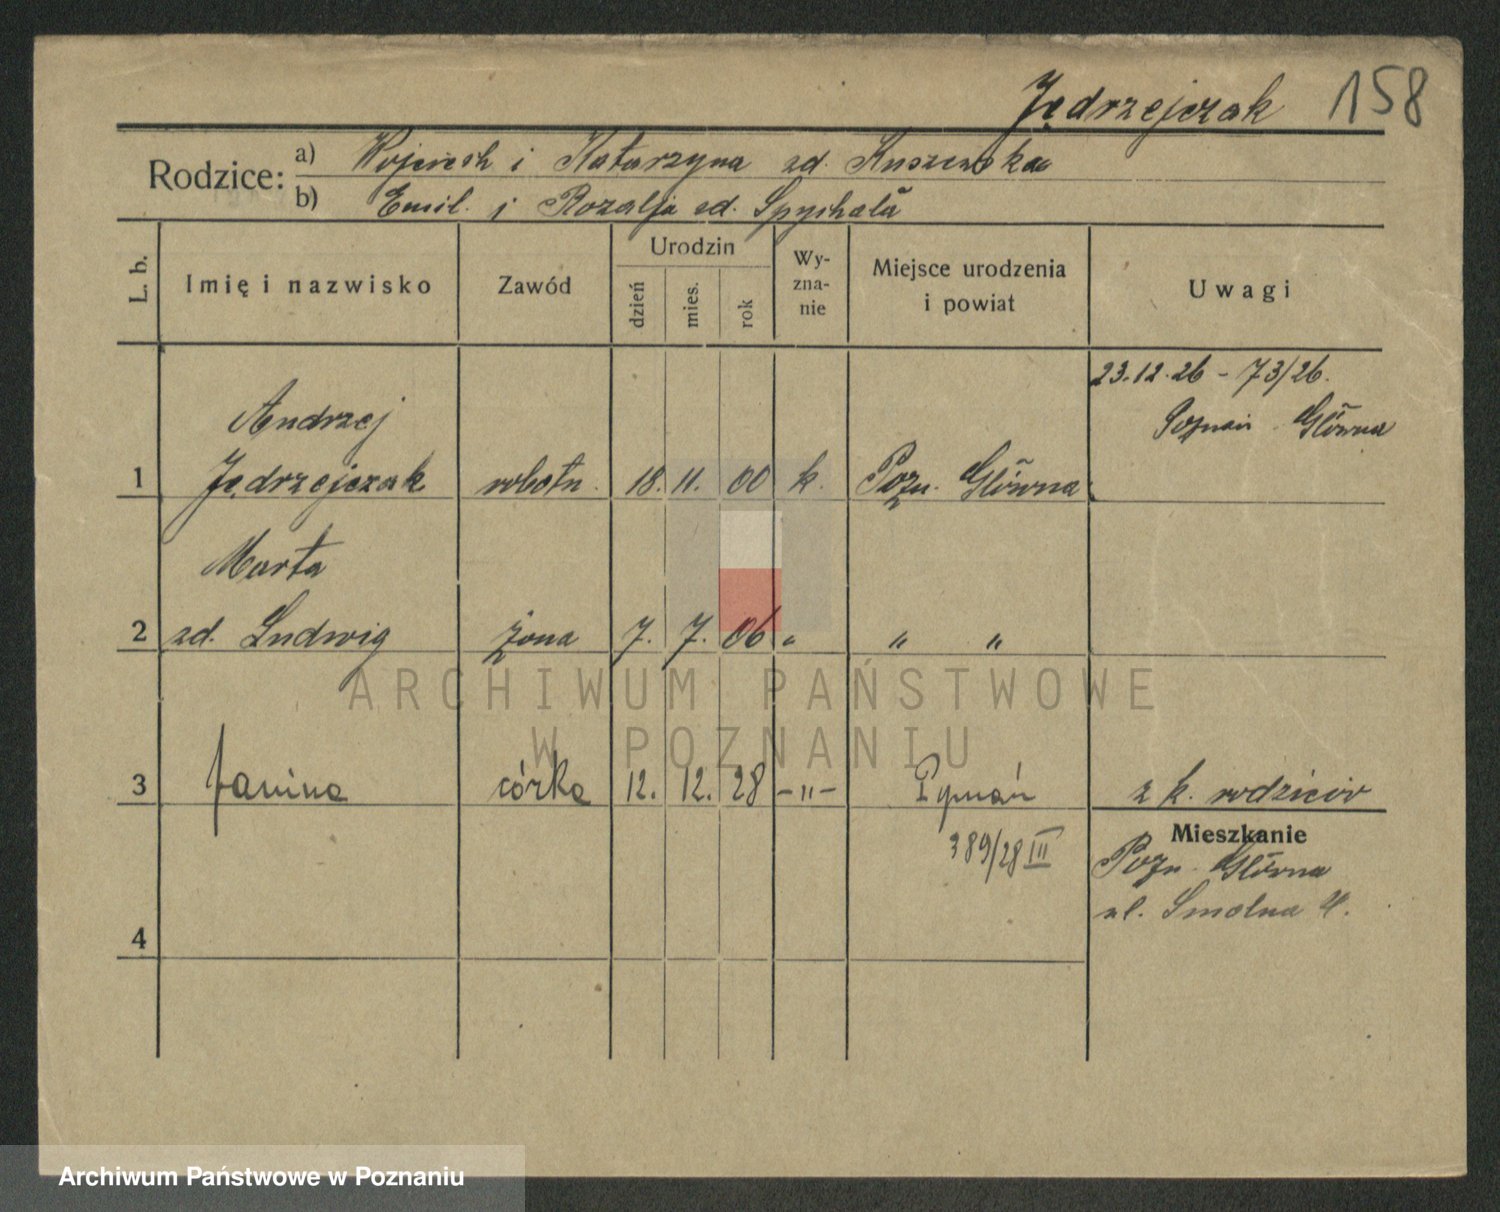 Jędrzejczak 158
Rodzice: a) Wojciech i Katarzyna zd. Kuszewska
b) Emil i Rozalja zd. Spychała
L. b. Imię i nazwisko Zawód Urodzin dzień mies. rok Wy-zna-nie Miejsce urodzenia i powiat Uwagi
23.12.26 - 73/26.
Poznań Główna
Andrzej
1 Jędrzejczak robotn. 18. 11. 00 k. Pozn. Główna
Marta
2 zd. Ludwig żona 7. 7. 06 " " "
ARCHIWUM PAŃSTWOWE
W POZNANIU
3 Janina córka 12. 12. 28 -"- Poznań z k. rodziców
389/28 III
Mieszkanie
Pozn. Główna
ul. Smolna
4
Archiwum Państwowe w Poznaniu